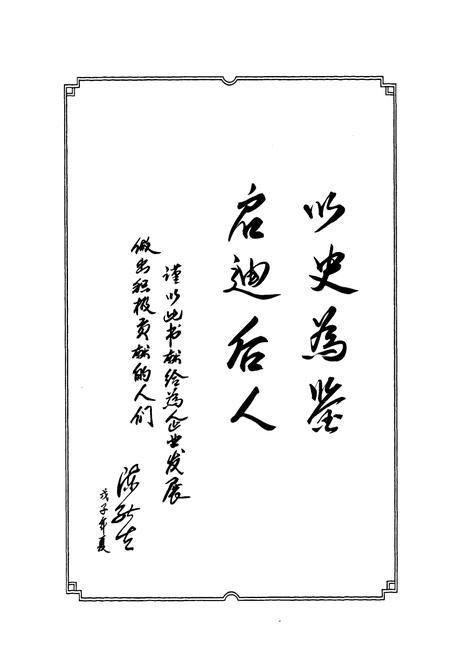 以史為鉴
启迪后人
谨以此书献给為企业发展
做出积极贡献的人们
陈
戊子年夏